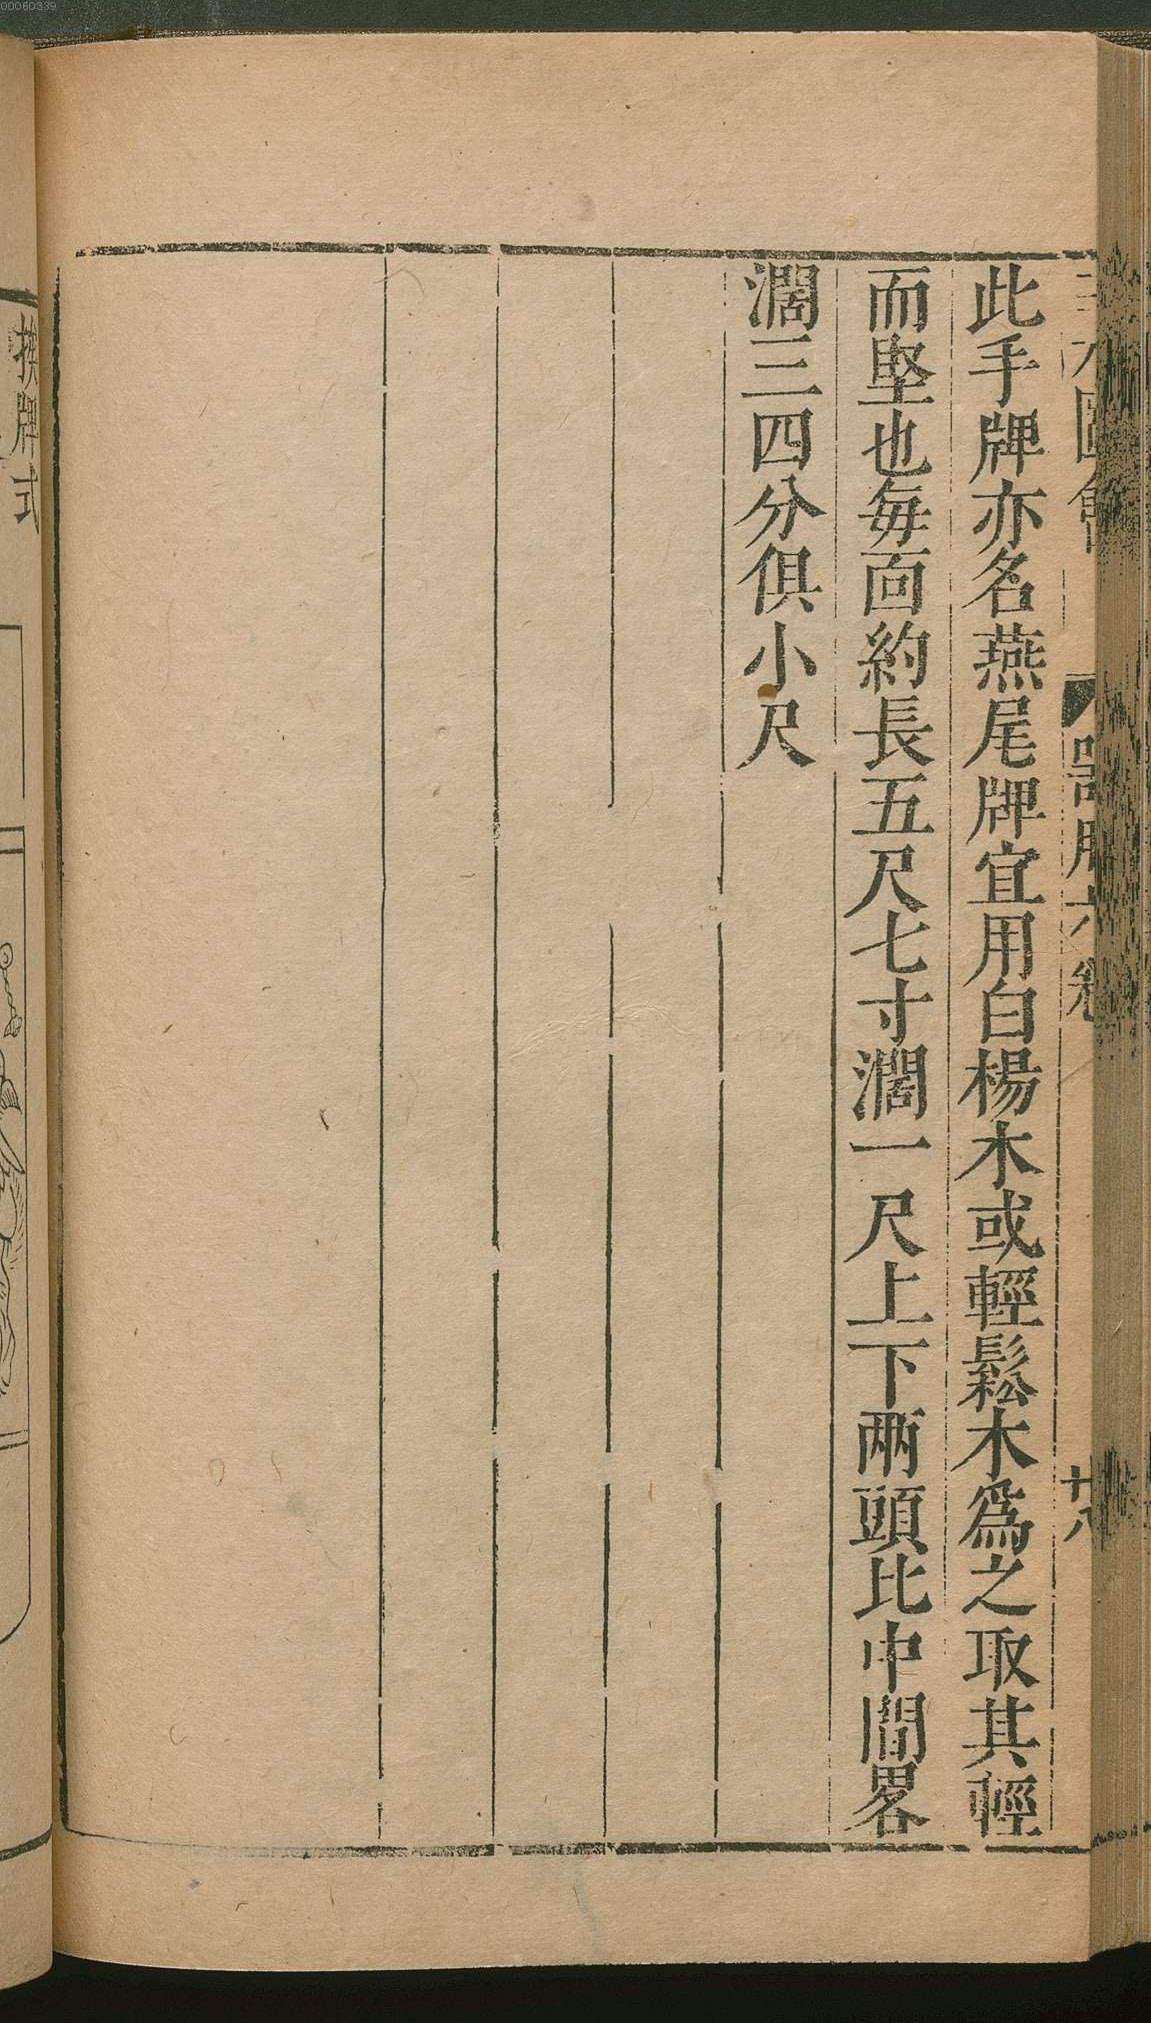 三才圖會 器用六卷 十八
此手牌亦名燕尾牌宜用白楊木或輕鬆木爲之取其輕
而堅也每面約長五尺七寸濶一尺上下兩頭比中間畧
濶三四分俱小尺
挨牌式
00060339